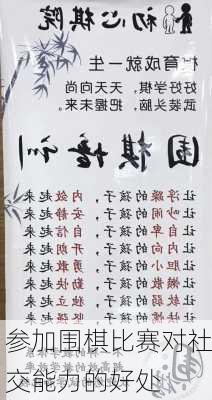 初心棋院
棋育成就一生
好好学棋 天天向尚
武装头脑 把握未来
围棋培训
让 浮躁 的孩子，内敛 起来
让 吵闹 的孩子，安静 起来
让 自卑 的孩子，自信 起来
让 内向 的孩子，开朗 起来
让 胆小 的孩子，勇敢 起来
让 懒散 的孩子，勤快 起来
让 软弱 的孩子，独立 起来
参加围棋比赛对社
交能力的好处